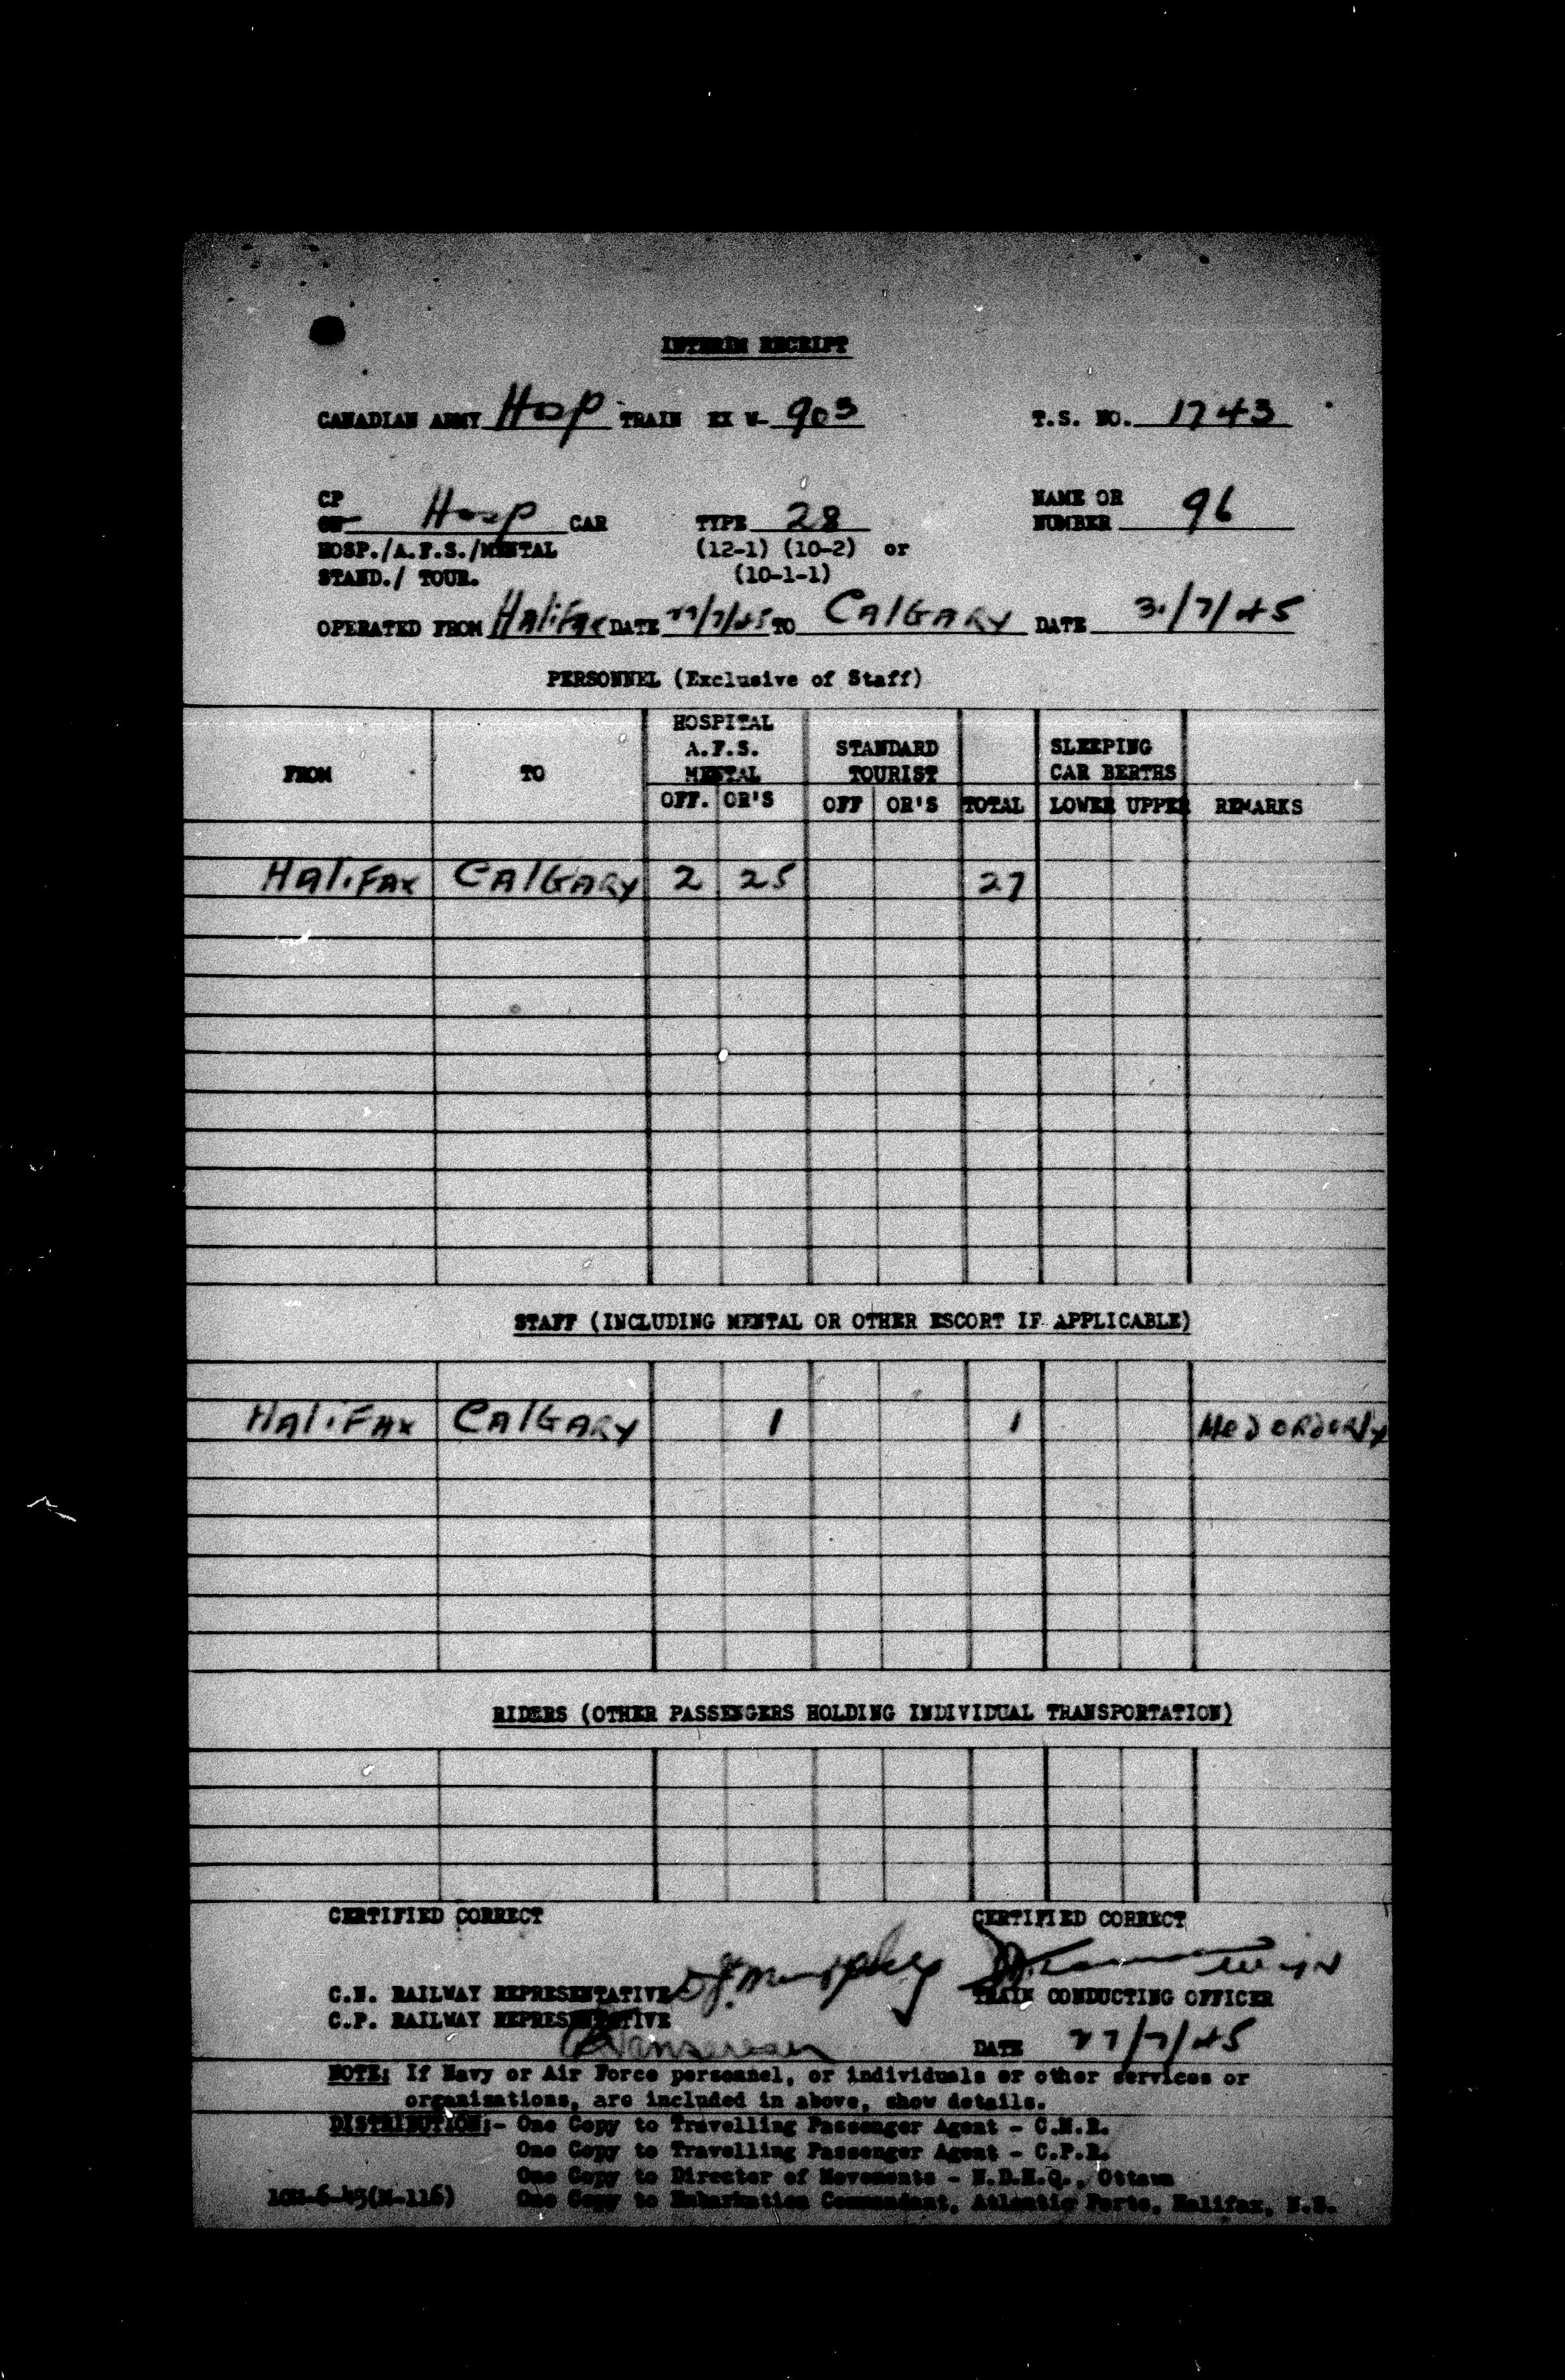 INTERIM RECEIPT
CANADIAN ARMY Hosp TRAIN EX W- 903 T.S. NO. 1743
CP
Hosp CAR TYPE 28 NAME OR NUMBER 96
HOSP./A.F.S./MENTAL (12-1) (10-2) or
STAND./ TOUR. (10-1-1)
OPERATED FROM Halifax DATE 27/7/45 TO CAlGARY DATE 31/7/45
PERSONNEL (Exclusive of Staff)
FROM TO HOSPITAL A.F.S. MENTAL STANDARD TOURIST SLEEPING CAR BERTHS
OFF. OR'S OFF OR'S TOTAL LOWER UPPER REMARKS
HaliFax CAlGARY 2 25 27
STAFF (INCLUDING MENTAL OR OTHER ESCORT IF APPLICABLE)
HAliFAx CAlGARY 1 1 Med ORDERly
RIDERS (OTHER PASSENGERS HOLDING INDIVIDUAL TRANSPORTATION)
CERTIFIED CORRECT CERTIFIED CORRECT
C.N. RAILWAY REPRESENTATIVE D J. Murphy TRAIN CONDUCTING OFFICER
C.P. RAILWAY REPRESENTATIVE
DATE 27/7/45
NOTE: If Navy or Air Force personnel, or individuals or other services or
organizations, are included in above, show details.
DISTRIBUTION:- One Copy to Travelling Passenger Agent - C.N.R.
One Copy to Travelling Passenger Agent - C.P.R.
One Copy to Director of Movements - N.D.H.Q., Ottawa
10M-6-45(M-116) One Copy to Embarkation Commandant, Atlantic Ports, Halifax, N.S.